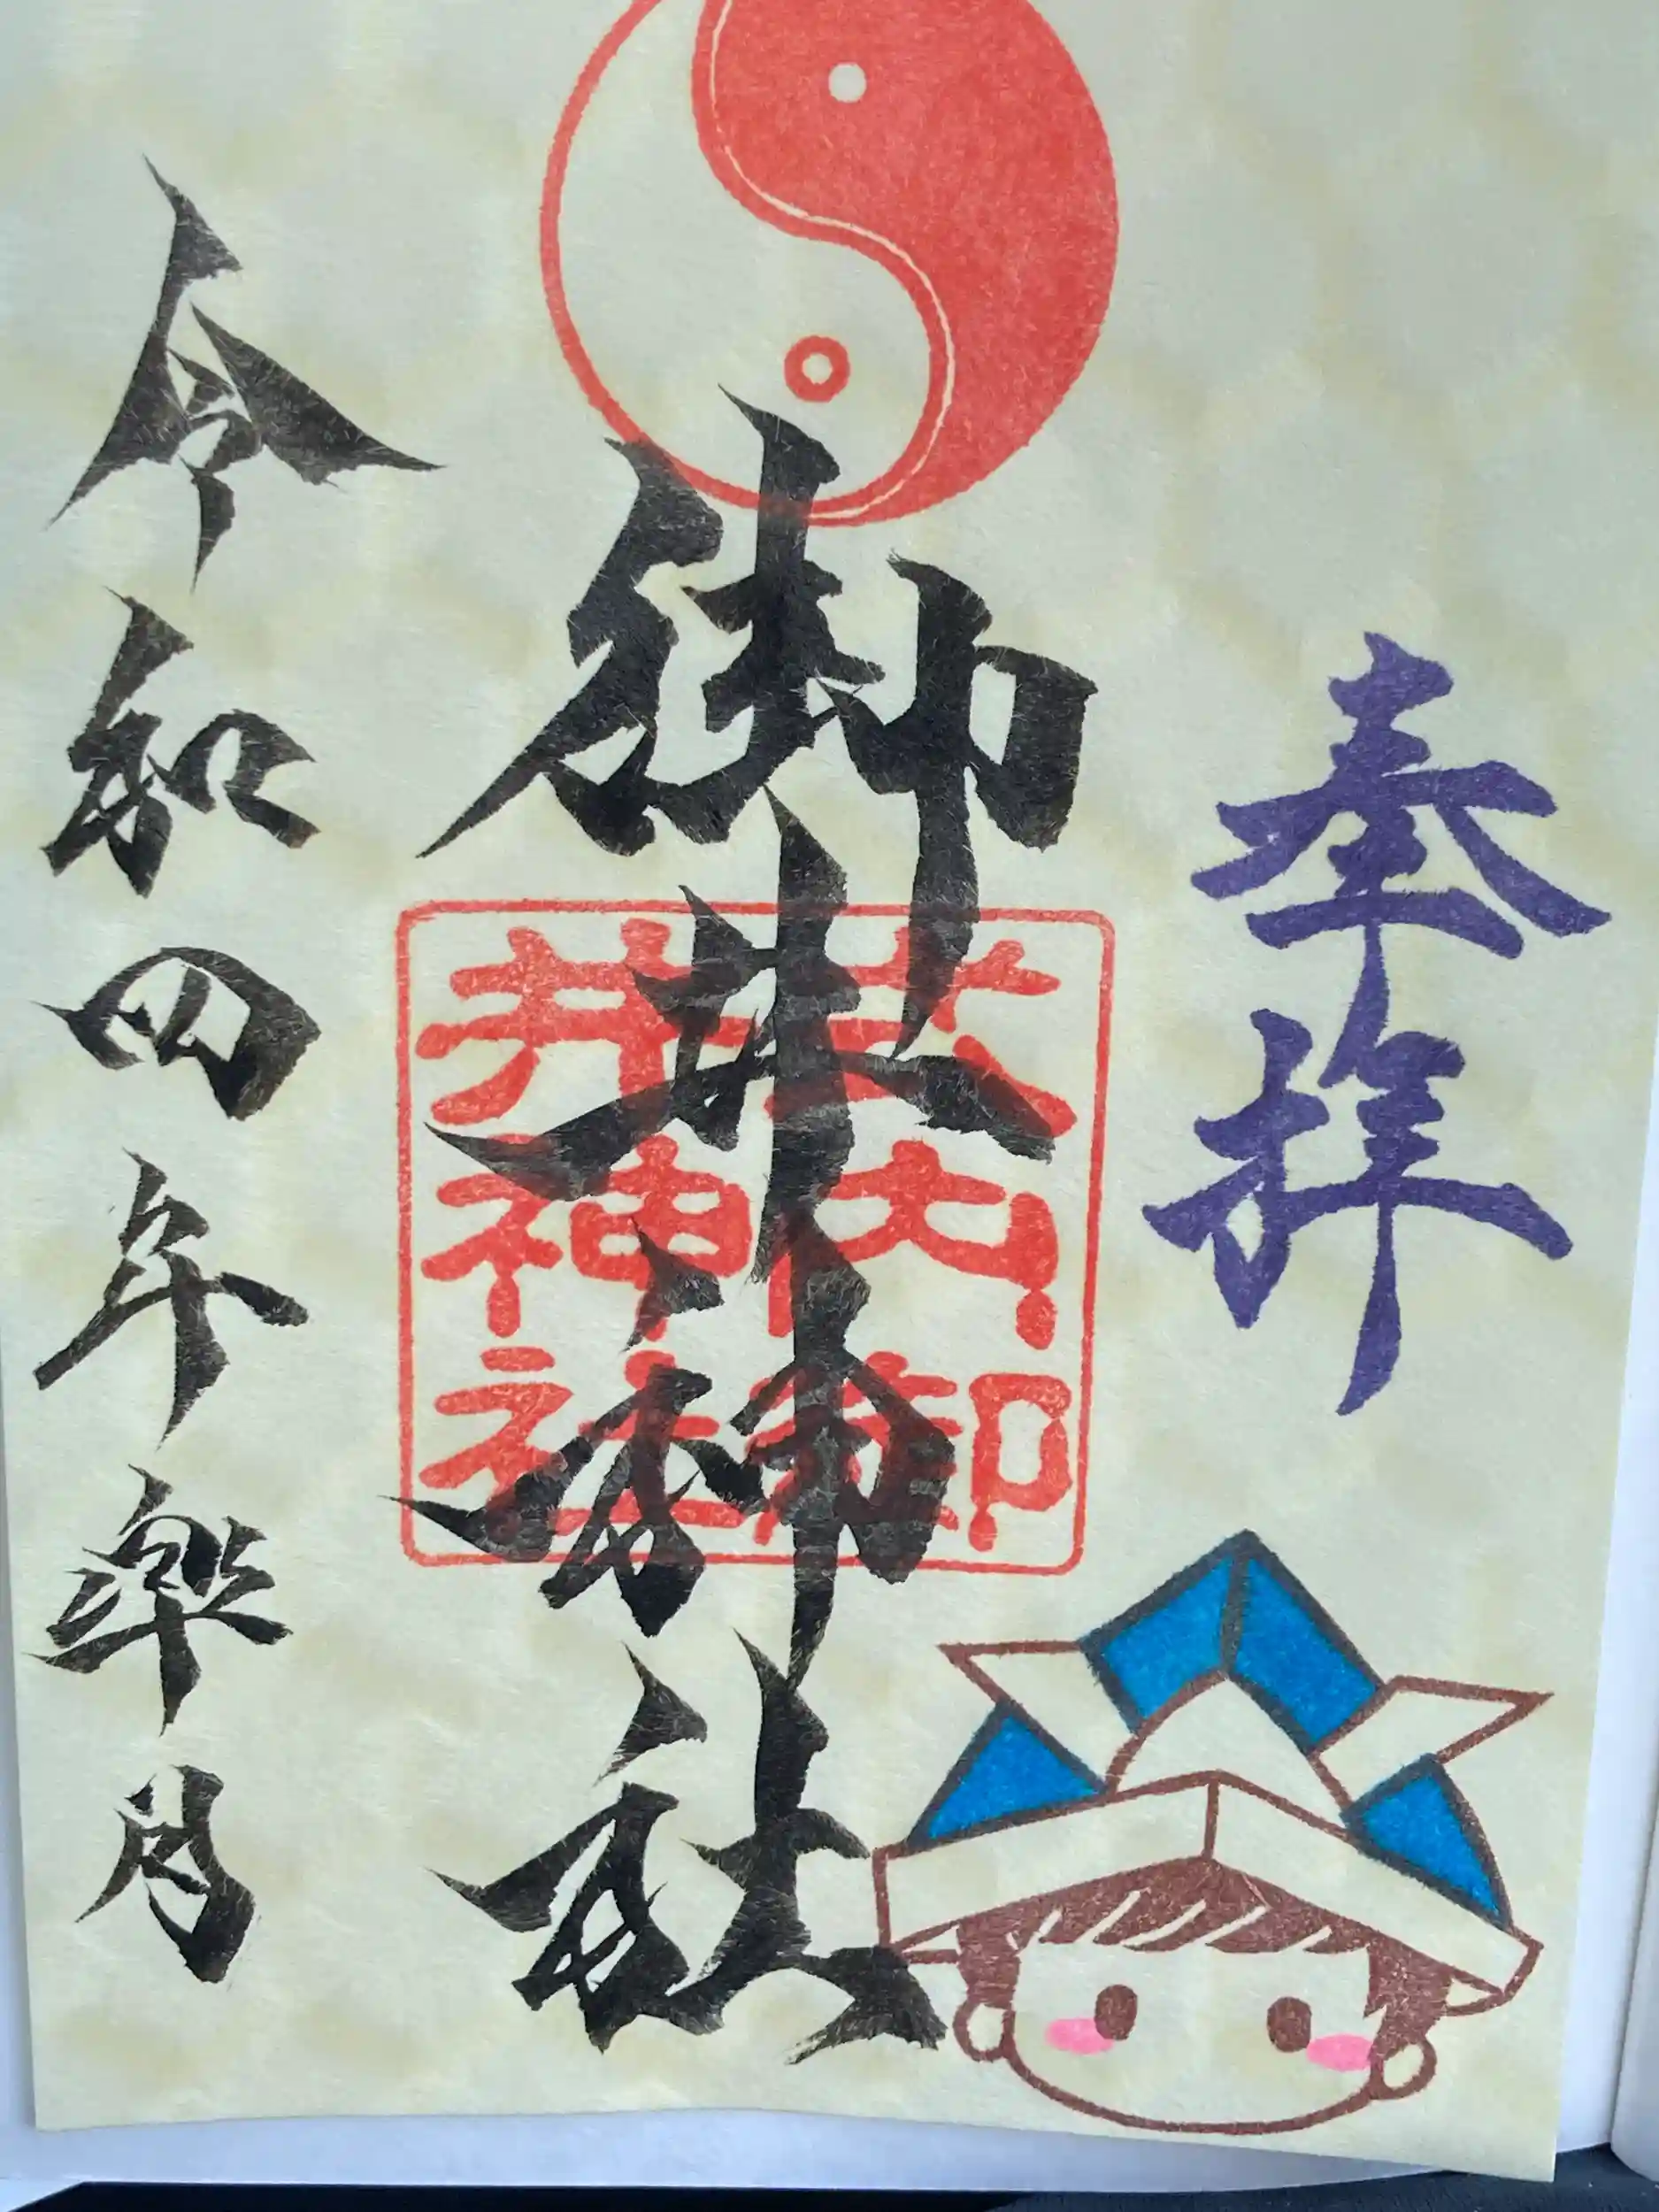 奉拝
御井神社
式内御
井神社
令和四年皐月